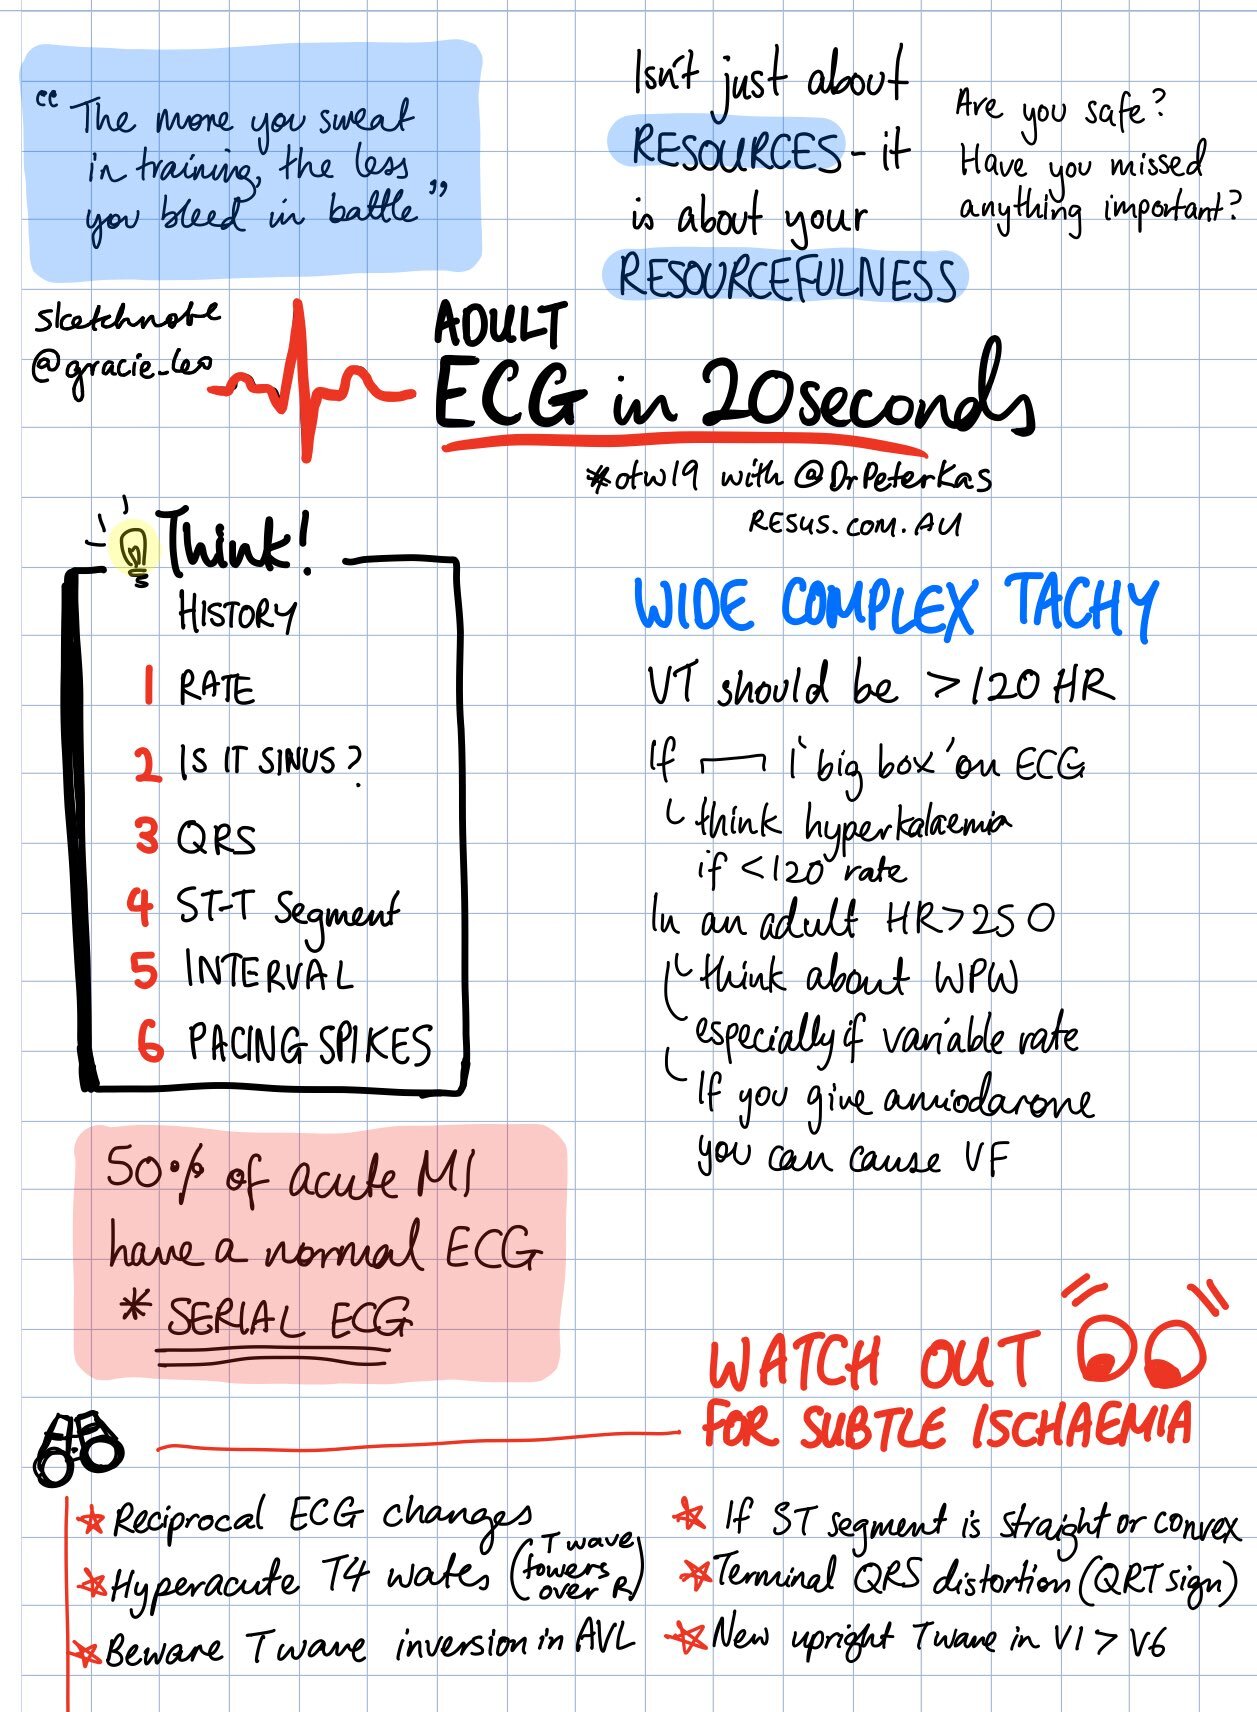 “The more you sweat
in training, the less
you bleed in battle”
Isn't just about
RESOURCES - it
is about your
RESOURCEFULNESS
Are you safe?
Have you missed
anything important?
sketchnote
@gracie_leo
ADULT
ECG in 20seconds
#otw19 with @DrPeterKas
RESUS.COM.AU
Think!
HISTORY
1 RATE
2 IS IT SINUS?
3 QRS
4 ST-T Segment
5 INTERVAL
6 PACING SPIKES
50% of acute MI
have a normal ECG
* SERIAL ECG
WIDE COMPLEX TACHY
VT should be >120 HR
If 1 'big box' on ECG
think hyperkalaemia
if <120 rate
In an adult HR>250
think about WPW
especially if variable rate
If you give amiodarone
you can cause VF
WATCH OUT
FOR SUBTLE ISCHAEMIA
Reciprocal ECG changes
Hyperacute T4 waves (T wave
towers
over R)
Beware T wave inversion in AVL
If ST segment is straight or convex
Terminal QRS distortion (QRT sign)
New upright T wave in V1 > V6